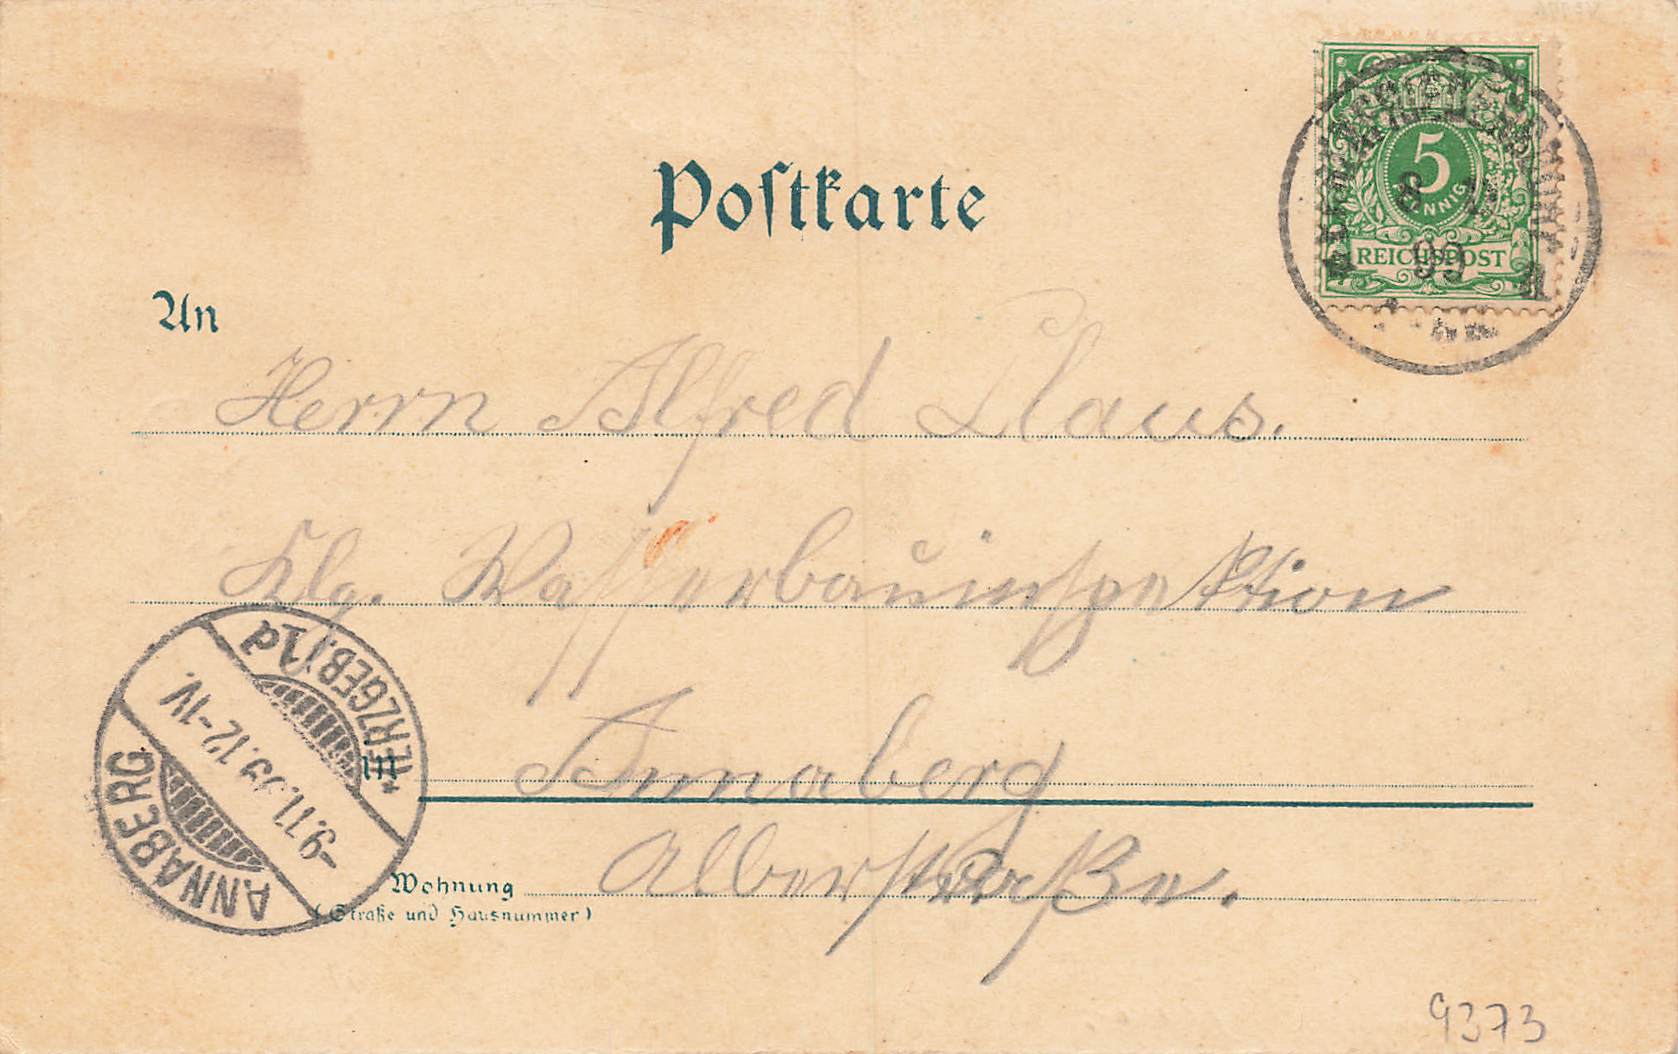 Postkarte
5
PFENNIG
REICHSPOST
8 11
99
An
Herrn Alfred Claus.
Klg. Wasserbauinspektion
in Annaberg
Wohnung Alberstraße.
(Straße und Hausnummer)
ANNABERG
(ERZGEB.) 1d
9.11.99.12-1V.
9373